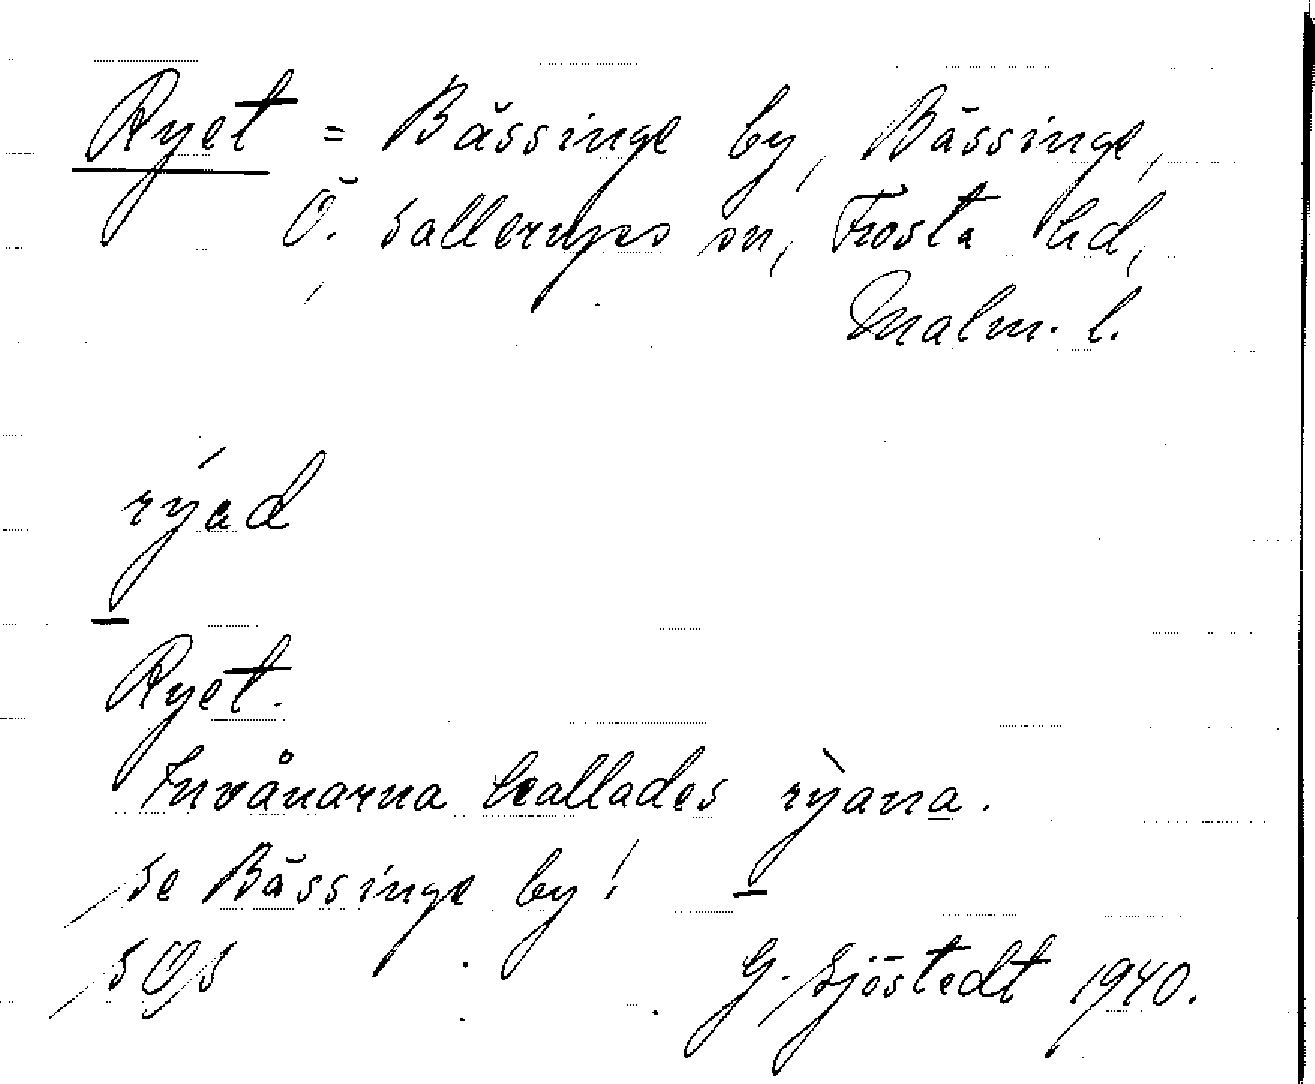 Ryet = Bässinge by, Bässinge,
Ö. Sallerups sn, Frosta hd,
Malm. l.
rýad
Ryet.
Invånarna kallades rỳana.
Se Bässinge by!
SOS
G. Sjöstedt 1940.